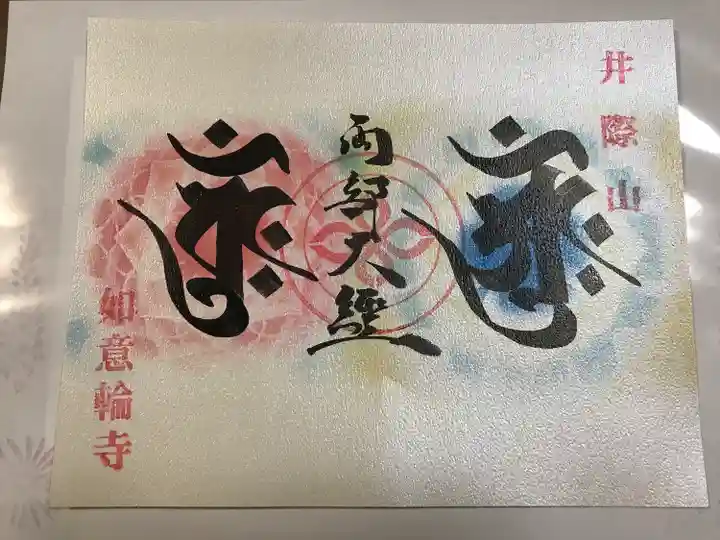 井際山
両部大経
如意輪寺